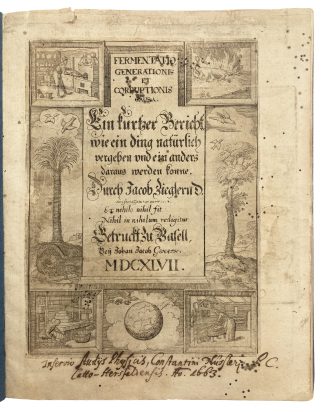 FERMENTATIO
GENERATIONIS
ET
CORRUPTIONIS
CAUSA.
Ein kurtzer Bericht,
wie ein ding natürlich
vergehen vnd ein anders
daraus werden könne.
Durch Jacob Zieglern D.
Ex nihilo nihil fit
Nihil in nihilum redigitur
Getruckt zu Basell,
Bey Johan Jacob
MDCXLVII.
Inservio studys Physicis, Constantini
Ao 1663.